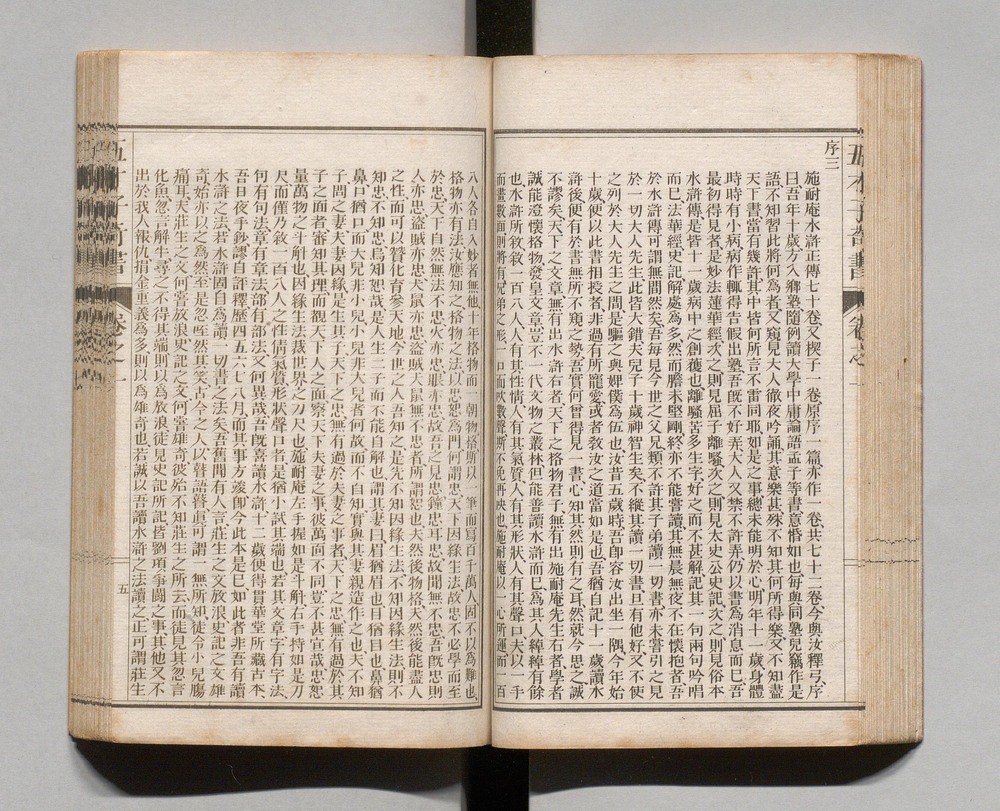 序三
施耐庵水滸正傳七十卷又楔子一卷原序一篇亦作一卷共七十二卷今與汝釋弓序
曰吾年十歲方入鄉塾隨例讀大學中庸論語孟子等書意惛如也每與同塾兒竊作是
語不知習此將何為者又窺見大人徹夜吟誦其意樂甚殊不知其何所得樂又不知盡
天下書當有幾許其中皆何所言不雷同耶如是之事總未能明於心明年十一歲身體
時時有小病病作輒得告假出塾吾既不好弄大人又禁不許弄仍以書為消息而已吾
最初得見者是妙法蓮華經次之則見屈子離騷次之則見太史公史記次之則見俗本
水滸傳是皆十一歲病中之創獲也離騷苦多生字好之而不甚解記其一句兩句吟唱
而已法華經史記解處為多然而膽未堅剛終亦不能嘗讀其無晨無夜不在懷抱者吾
於水滸傳可謂無間然矣吾每見今世之父兄類不許其子弟讀一切書亦未嘗引之見
於一切大人先生此皆大錯夫兒子十歲神智生矣不縱其讀一切書且有他好又不使
之列於大人先生之間是驅之與婢僕為伍也汝昔五歲時吾卽容汝出坐一隅今年始
十歲便以此書相授者非過有所寵愛或者敎汝之道當如是也吾猶自記十一歲讀水
滸後便有於書無所不窺之勢吾實何曾得見一書心知其然則有之耳然就今思之誠
不謬矣天下之文章無有出水滸右者天下之格物君子無有出施耐庵先生右者學者
誠能澄懷格物發皇文章豈不一代文物之叢林但能善讀水滸而已為其人綽綽有餘
也水滸所敘敘一百八人人有其性情人有其氣質人有其形狀人有其聲口夫以一手
而畫數面則將有兄弟之形一口而吹數聲斯不免再吷也施耐庵以一心所運而一百
八人各自入妙者無他十年格物而一朝物格斯以一筆而寫百千萬人固不以為難也
格物亦有法汝應知之格物之法以忠恕為門何謂忠天下因緣生法故忠不必學而至
於忠天下自然無法不忠火亦忠眼亦忠故吾之見忠鐘忠耳忠故聞無不忠吾旣忠則
人亦忠盜賊亦忠犬鼠亦忠盜賊犬鼠無不忠者所謂恕也夫然後物格夫然後能盡人
之性而可以贊化育參天地今世之人吾知之是先不知因緣生法不知因緣生法則不
知忠不知忠烏知恕哉是人生二子而不能自解也謂其妻曰眉猶眉也目猶目也鼻猶
鼻口猶口而大兒非小兒小兒非大兒者何故而不自知實與其妻親造作之也夫不知
子問之妻夫妻因緣是生其子天下之忠無有過於夫妻之事者天下之忠無有過於其
子之面者審知其理而覩天下人之面察天下夫妻之事彼萬面不同豈不甚宜哉忠恕
量萬物之斗斛也因緣生法裁世界之刀尺也施耐庵左手握如是斗斛右手持如是刀
尺而僅乃敘一百八人之性情氣質形狀聲口者是猶小試其端也若其文章字有字法
句有句法章有章法部有部法又何異哉吾旣喜讀水滸十二歲便得貫華堂所藏古本
吾日夜手鈔謬自評釋歷四五六七八月而其事方竣卽今此本是已如此者非吾有讀
水滸之法若水滸固自為讀一切書之法矣吾舊聞有人言莊生之文放浪史記之文雄
奇始亦以之為然至是忽咥然其笑古今之人以瞽語瞽眞可謂一無所知徒令小兒腸
痛耳夫莊生之文何嘗放浪史記之文何嘗雄奇彼殆不知莊生之所云而徒見其忽言
化魚忽言解牛尋之不得其端則以為放浪徒見史記所記皆劉項爭鬬之事其他又不
出於我人報仇捐金重義為多則以為雄奇也若誠以吾讀水滸之法讀之正可謂莊生
五